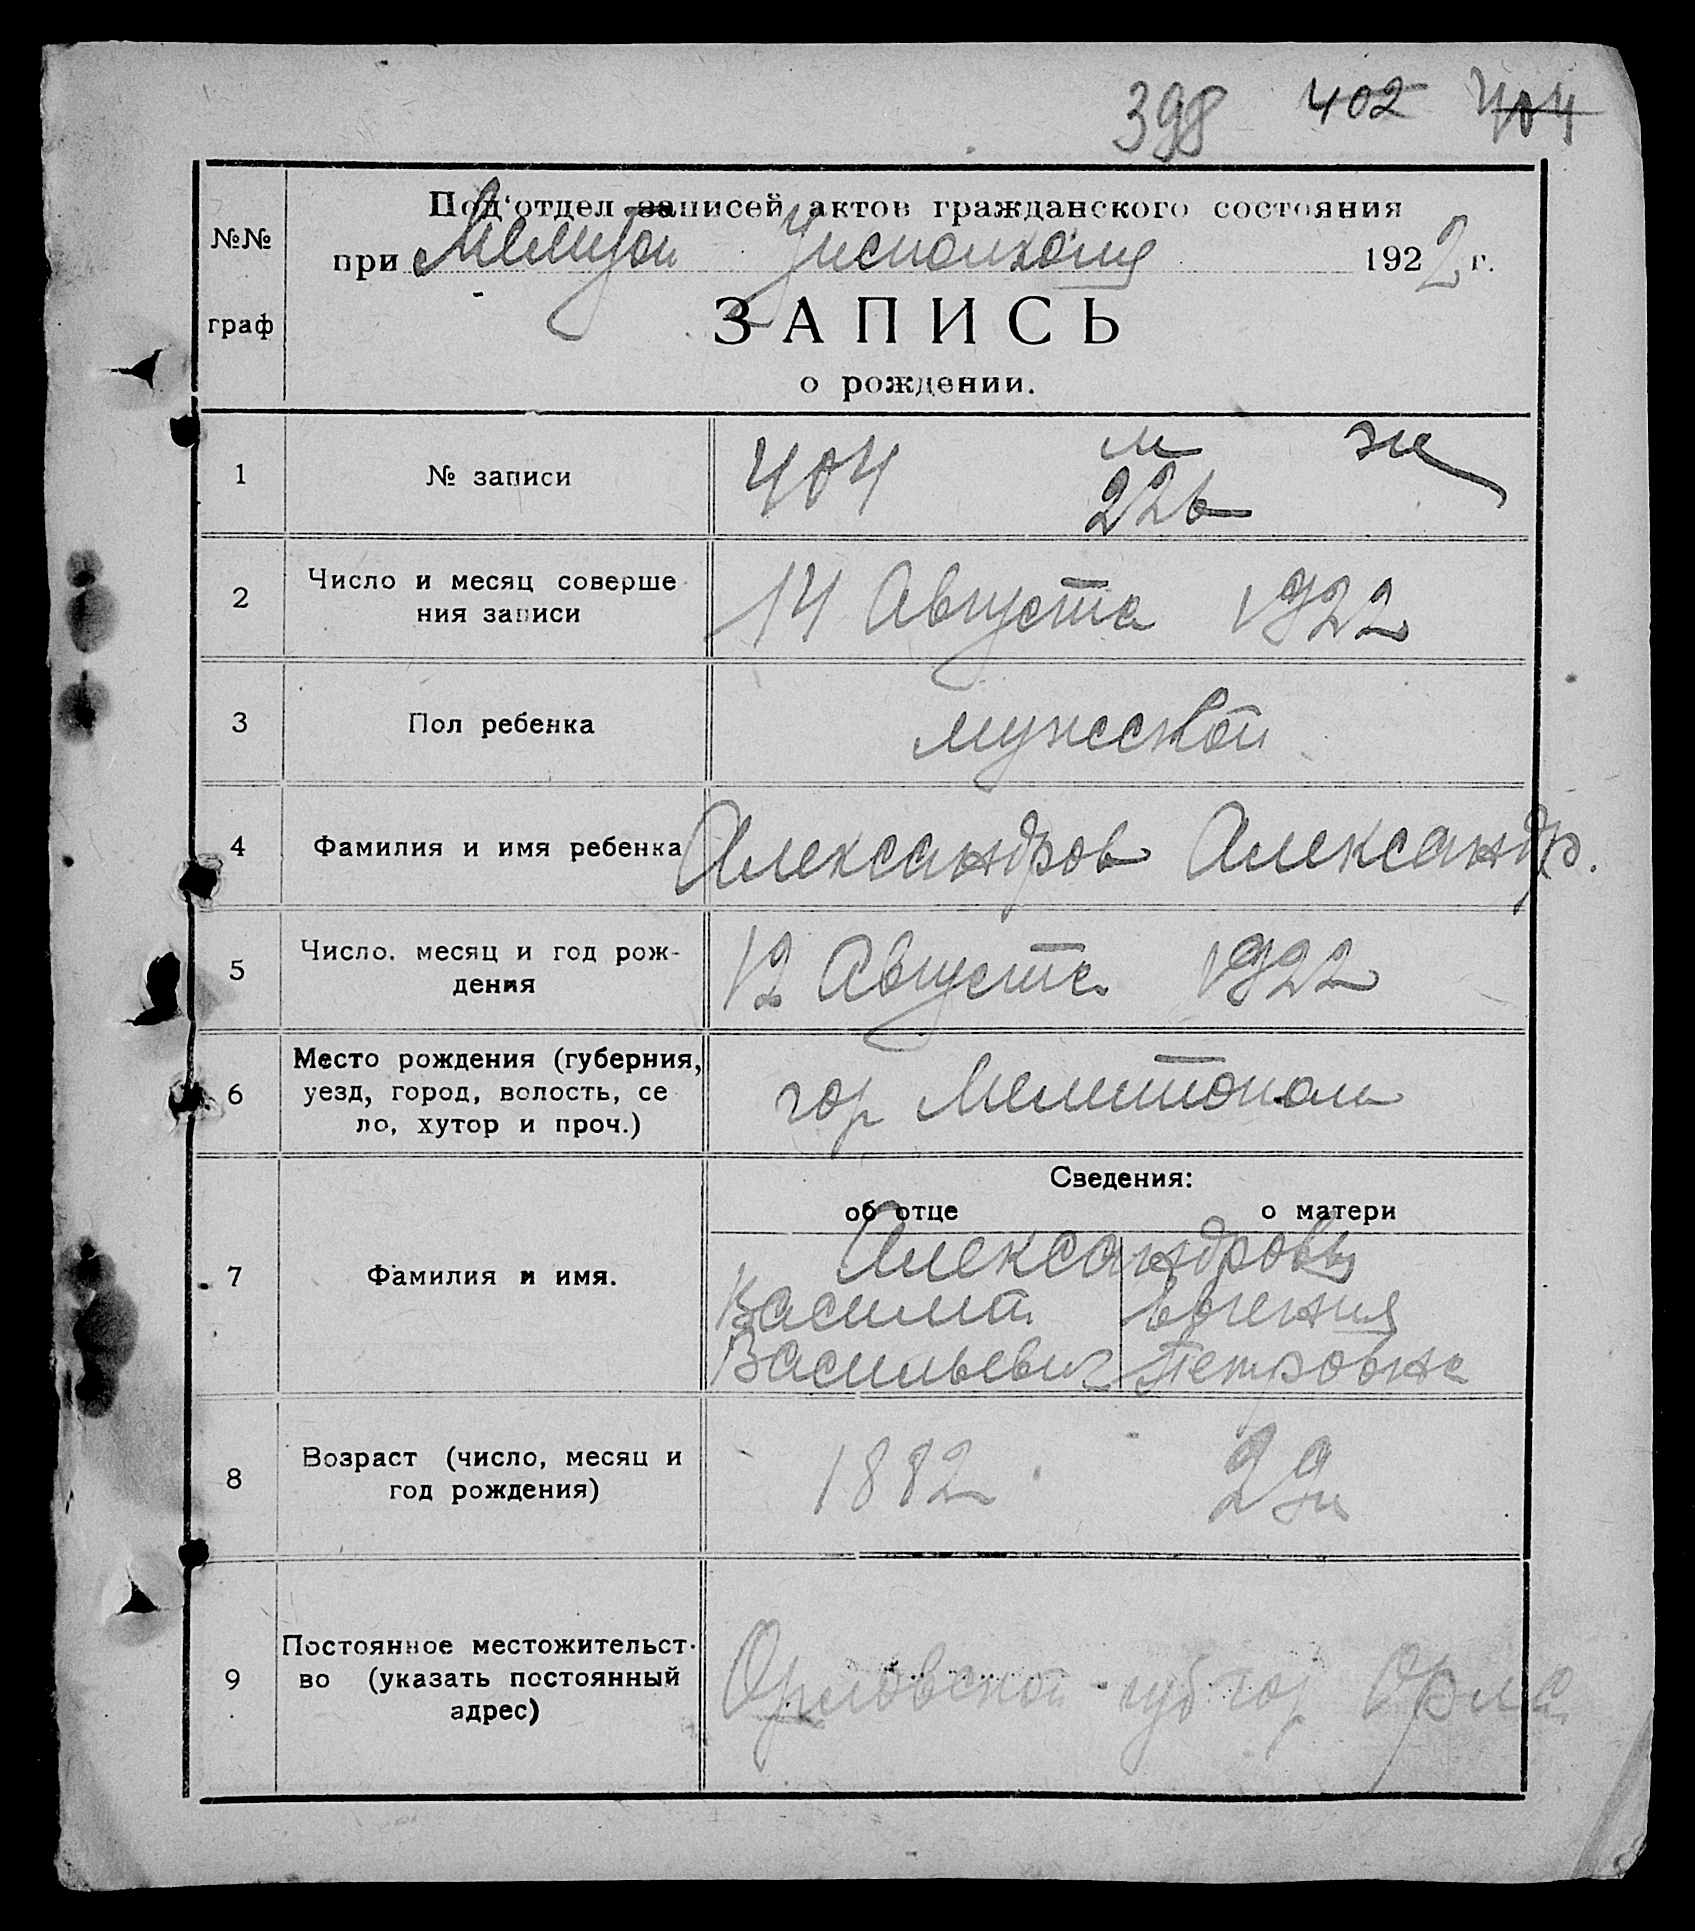 398 402 404
№№ граф
Под'отдел записей актов гражданского состояния
при Мелит Уисполкома 1922 г.
ЗАПИСЬ
о рождении.
1 № записи 404 м ж
226
2 Число и месяц соверше 14 Августа 1922
ния записи
3 Пол ребенка мужской
4 Фамилия и имя ребенка Александров Александр.
5 Число, месяц и год рож- 12 Августа 1922
дения
6 Место рождения (губерния,
уезд, город, волость, се гор Мелитополь
ло, хутор и проч.)
Сведения:
об отце о матери
Александровы
7 Фамилия и имя. Василий Евгения
Васильевич Петровна
8 Возраст (число, месяц и 1882 29
год рождения)
Постоянное местожительст-
9 во (указать постоянный Орловской губ гор Орла
адрес)